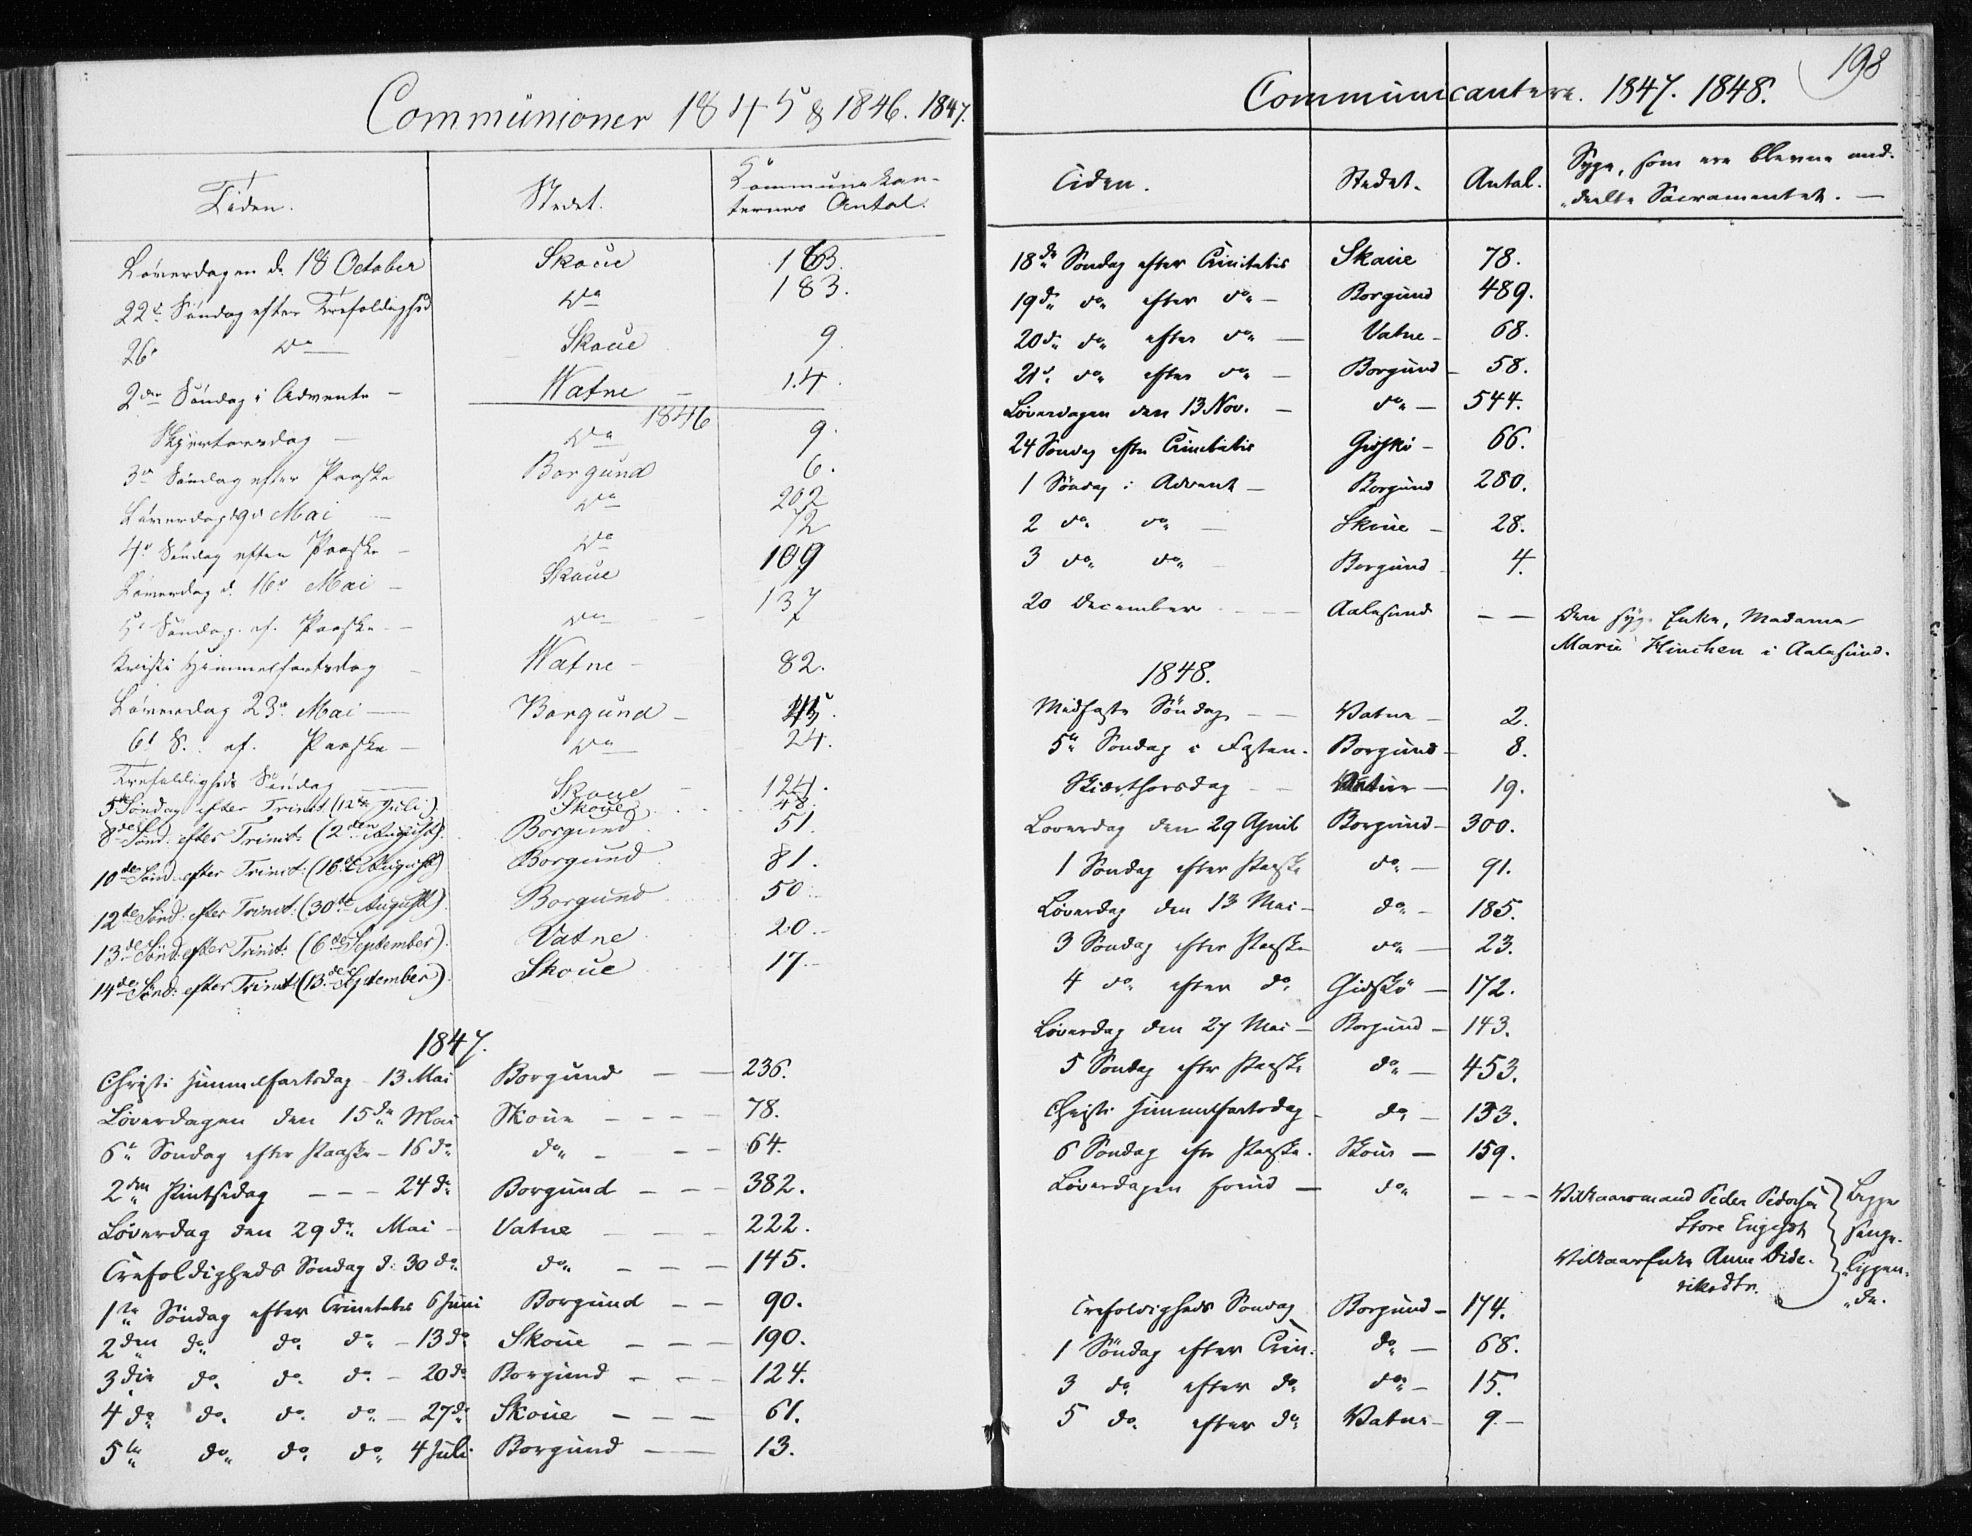 Communioner 1845 & 1846. 1847.
Tiden. Stedet. Kommunikan-
ternes Antal.
Løverdagen d. 18 October Skoue 163.
22de Søndag efter Trefoldighed do 183.
26 do Skoue 9.
2den Søndag i Advente - Watne - 14.
1846
Skjertorsdag - do 9.
3de Søndag efter Paaske Borgund 6.
Løverdag 9de Mai - do 202
4de Søndag efter Paaske - do 72
Løverdag d. 16de Mai - Skoue 109
5te Søndag ef. Paaske - do - 137
Kristi Himmelfartsdag - Watne - 82.
Løverdag 23de Mai - Borgund -
6te S. ef. Paaske - do 24.
Trefoldigheds Søndag Skoue - 124.
5te Søndag efter Trinit. (12te Juli) Skoue 48.
8de Sønd. efter Trinit: (2den August). Borgund 51.
10de Sønd. efter Trinit: (16de August) Borgund 81.
12te Sønd. efter Trinit: (30te August). Borgund 50.
13de Sønd. efter Trinit: (6te September). Vatne 20.-
14de Sønd. efter Trinit: (13de September). Skoue 17.-
1847.
Christi Himmelfartsdag - 13 Mai Borgund - - 236.
Løverdagen den 15de Mai Skoue - - - - 78.
6te Søndag efter Paaske - 16 do do - - - 64.
2den Pintsedag - - - 24 do Borgund - - - 382.
Løverdag den 29de Mai - Vatne - - - 222.
Trefoldigheds Søndag d. 30 do do - - - 145.
1te Søndag efter Trinitatis 6 Juni Borgund - - 90.
2den do do do - 13 do Skoue - - - 190.
3die do do do - 20 do Borgund - - - 124.
4de do do do - 27 do Skoue - - - 61.
5te do do do 4 Juli Borgund - - 13.
198
Communicantere. 1847. 1848.
Tiden. Stedet. Antal. Syge, som ere blevne med-
deelte Sacramentet. -
18de Søndag efter Trinitatis Skoue 78.
19de do efter do - Borgund 489.
20de do efter do - Vatne - 68.
21de do efter do - Borgund - 58.
Løverdagen den 13 Nov. - do - 544.
24 Søndag efter Trinitatis Gidskö - 66.
1 Søndag i Advent - Borgund 280.
2 do do - Skoue - 28.
3 do do - Borgund 4.
20 December - - - Aalesund - - Den syge Enke, Madame
Marie Hinchen i Aalesund.
1848.
Midfaste Søndag - - Vatne - 2.
5te Søndag i Fasten. Borgund - 8.
Skiærthorsdag - - Vatne - 19.
Løverdag den 29 April Borgund - 300.
1 Søndag efter Paaske do - 91.
Løverdag den 13 Mai - do - 185.
3 Søndag efter Paaske do - 23.
4 do efter do Gidskö - 172.
Løverdag den 27 Mai - Borgund - 143.
5 Søndag efter Paaske do - 453.
Christi Himmelfartsdag - do - 133.
6 Søndag efter Paaske. Skoue - 159.
Løverdagen forud - do - - - Vilkaarsmand Peder Pedersen Begge
Store senge-
Vilkaarsenke Anne Dide- liggen-
riksdtr. de.
Trefoldigheds Søndag Borgund - 174.
1 Søndag efter Trin. do - 68.
3 do efter do do - 15.
5 do efter do Vatne - 9 -